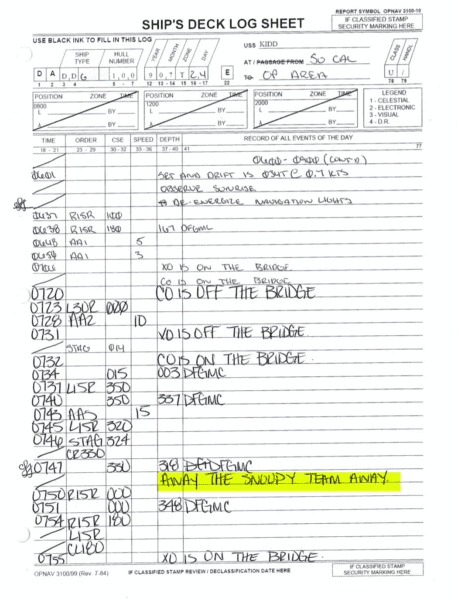 REPORT SYMBOL OPNAV 3100-10
SHIP'S DECK LOG SHEET
IF CLASSIFIED STAMP
SECURITY MARKING HERE
USE BLACK INK TO FILL IN THIS LOG
USS KIDD
SHIP TYPE HULL NUMBER YEAR MONTH ZONE DAY
AT / PASSAGE FROM SO CAL
D A D, D G 1, 0, 0 9 0 7 T 2 4 E
TO OP AREA
U
POSITION ZONE TIME POSITION ZONE TIME POSITION ZONE TIME
0800 1200 2000
L BY L BY L BY
λ BY λ BY λ BY
LEGEND
1 - CELESTIAL
2 - ELECTRONIC
3 - VISUAL
4 - D.R.
TIME ORDER CSE SPEED DEPTH RECORD OF ALL EVENTS OF THE DAY
(CONT'D)
SET AND DRIFT IS 034T @ 0.7 KTS
OBSERVE SUNRISE
DE-ENERGIZE NAVIGATION LIGHTS
0637 R15R
0638 R15R 180 167 DFGMC
0648 AA1 5
AA1 3
XO IS ON THE BRIDGE
CO IS ON THE BRIDGE
0720 CO IS OFF THE BRIDGE
0723 L30R 000
0728 AA2 10
0731 XO IS OFF THE BRIDGE
STAG 014
0732 CO IS ON THE BRIDGE.
0734 015 003 DFGMC
0737 L15R 350
0740 350 337 DFGMC
0743 AAS 15
0745 L15R 320
0746 STAG 324
CR330
0747 330 318 DFGMC
AWAY THE SNOOPY TEAM AWAY.
0750 R15R 000
0751 000 348 DFGMC
0754 R15R 180
L15R
CL180
0755 XO IS ON THE BRIDGE.
OPNAV 3100/99 (Rev. 7-84) IF CLASSIFIED STAMP REVIEW / DECLASSIFICATION DATE HERE
IF CLASSIFIED STAMP
SECURITY MARKING HERE